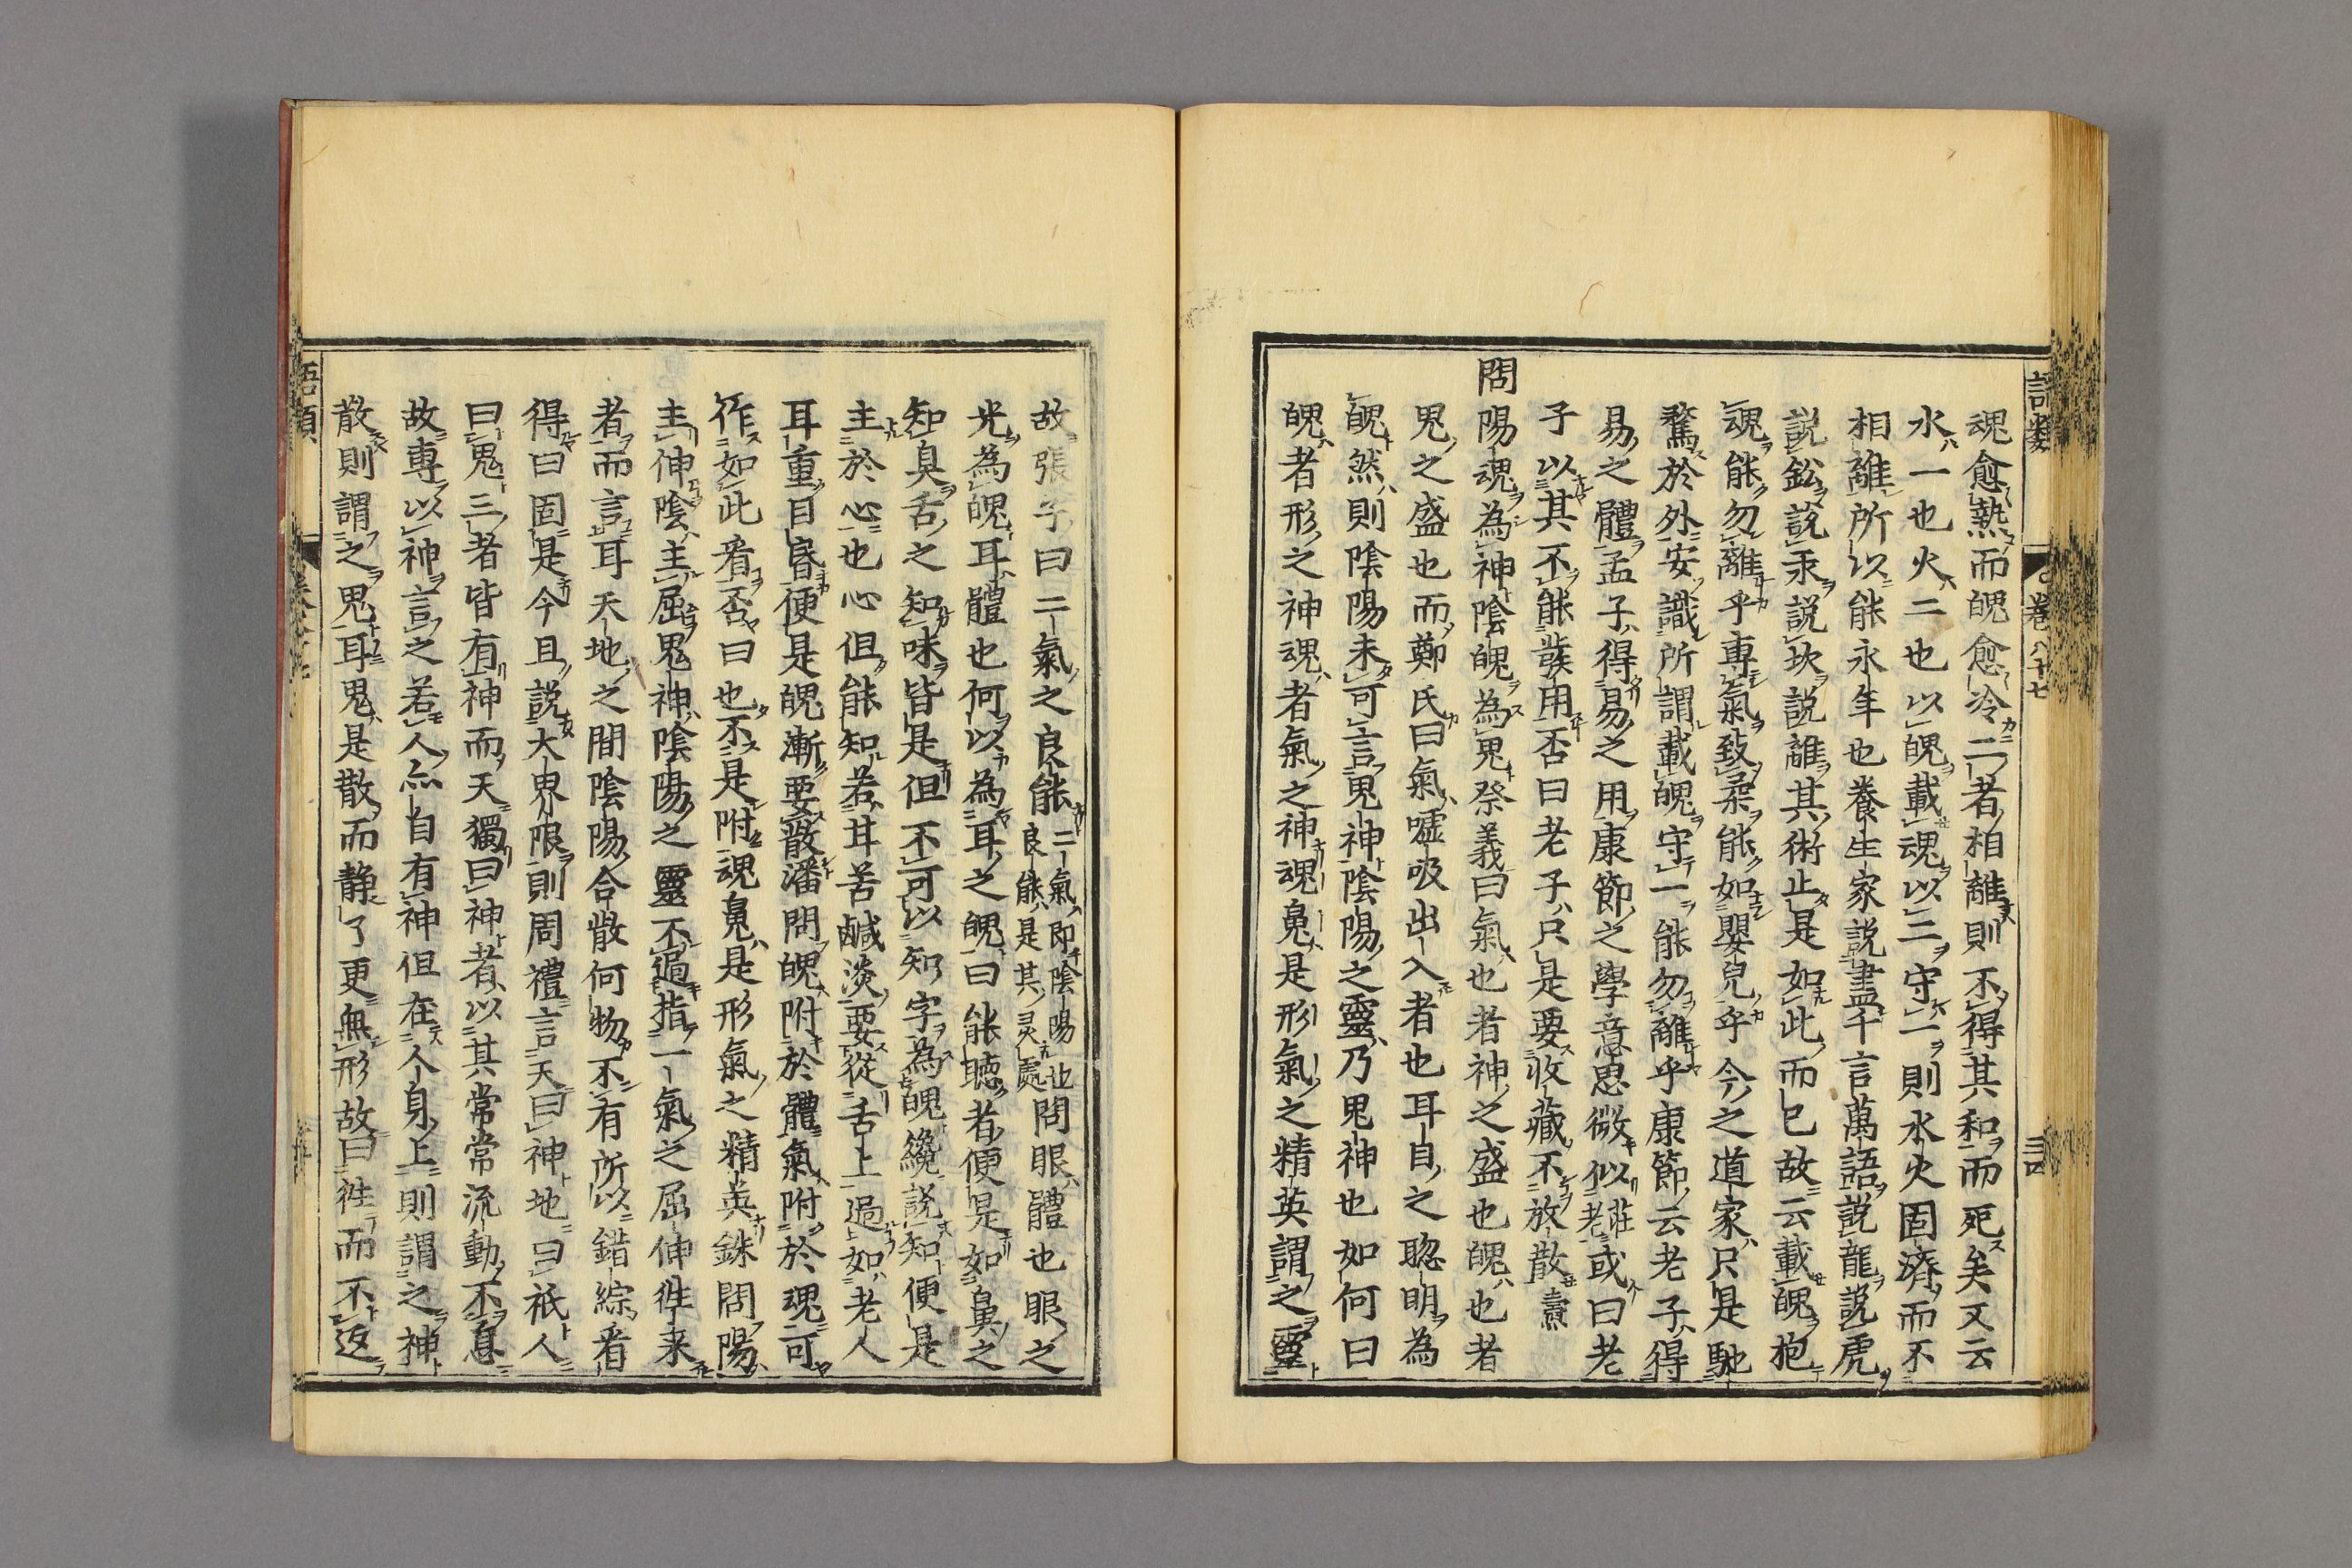 語類
卷八十七
三四
魂愈熱而魄愈冷二者相離則不得其和而死矣又云
水一也火二也以魄載魂以二守一則水火固濟而不
相離所以能永年也養生家說盡千言萬語說龍說虎
說鈆說汞說坎說離其術止是如此而已故云載魄抱
魂能勿離乎專氣致柔能如嬰兒乎今之道家只是馳
騖於外安識所謂載魄守一能勿離乎康節云老子得
易之體孟子得易之用康節之學意思微似莊老或曰老
子以其不能發用否曰老子只是要收藏不放散燾
問陽魂為神陰魄為鬼祭義曰氣也者神之盛也魄也者
鬼之盛也而鄭氏曰氣噓吸出入者也耳目之聰明為
魄然則陰陽未可言鬼神陰陽之靈乃鬼神也如何曰
魄者形之神魂者氣之神魂鬼是形氣之精英謂之靈
故張子曰二氣之良能二氣即陰陽也良能是其灵處問眼體也眼之
光為魄耳體也何以為耳之魄曰能聽者便是如鼻之
知臭舌之知味皆是但不可以知字為魄纔說知便是
主於心也心但能知若甘苦鹹淡要從舌上過如老人
耳重目昏便是魄漸要散潘問魄附於體氣附於魂可
作如此看否曰也不是附魂鬼是形氣之精英銖問陽
主伸陰主屈鬼神陰陽之靈不過指一氣之屈伸徃来
者而言耳天地之間陰陽合散何物不有所以錯綜看
得曰固是今且說大界限則周禮言天曰神地曰祇人
曰鬼三者皆有神而天獨曰神者以其常常流動不息
故專以神言之若人亦自有神但在人身上則謂之神
散則謂之鬼耳鬼是散而静了更無形故曰徃而不返
語類